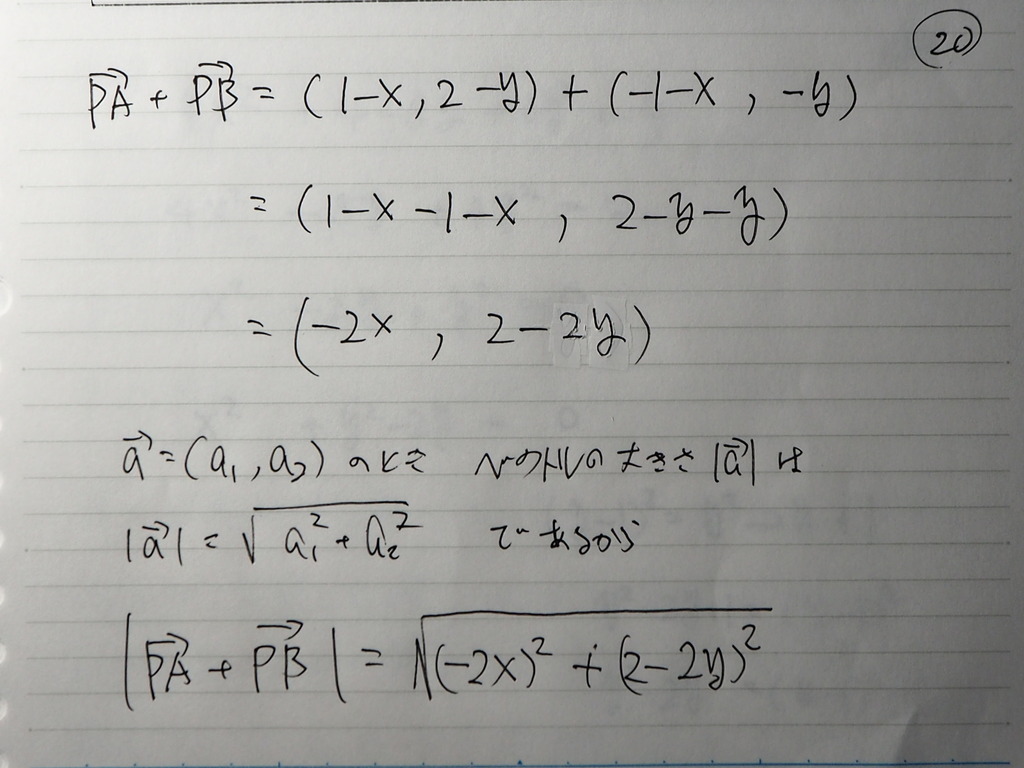 ⑳
→PA + →PB = (1-x, 2-y) + (-1-x, -y)
= (1-x-1-x, 2-y-y)
= (-2x, 2-2y)
→a = (a₁, a₂) のとき ベクトルの大きさ |→a| は
|→a| = √(a₁² + a₂²) であるから
|→PA + →PB| = √((-2x)² + (2-2y)²)